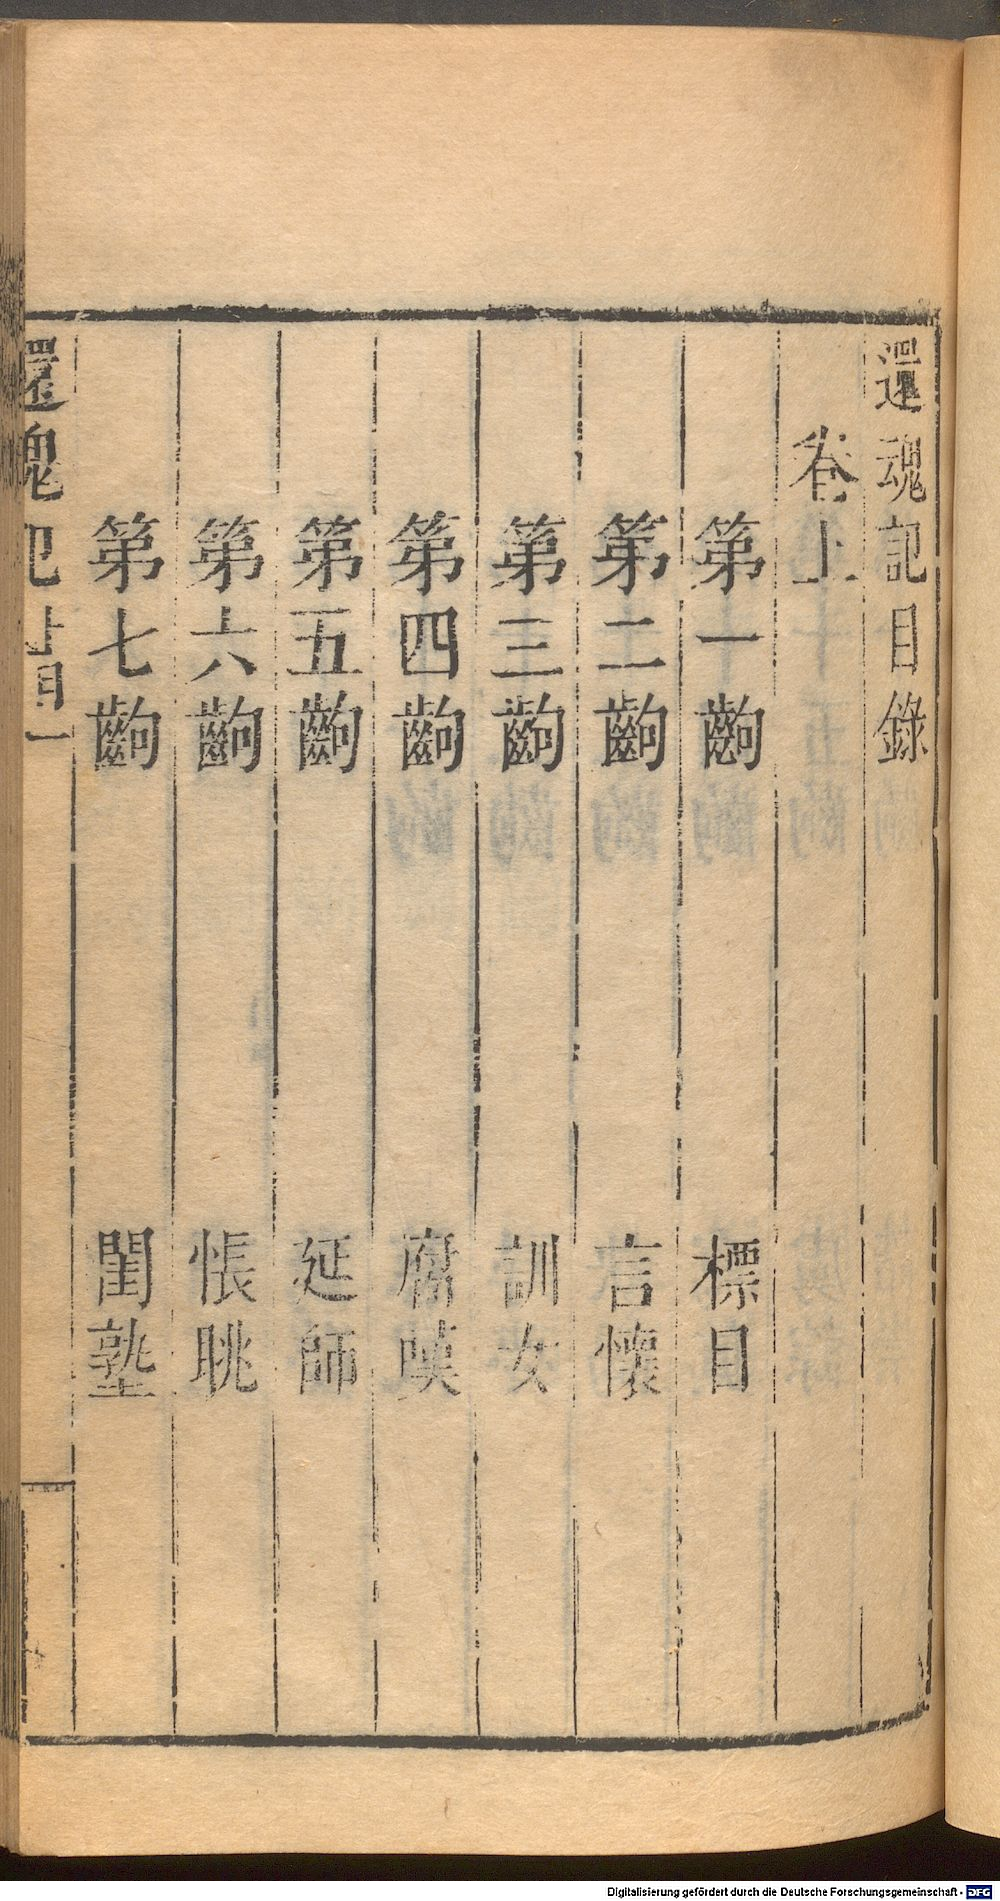 還魂記目錄
卷上
第一齣 標目
第二齣 言懷
第三齣 訓女
第四齣 腐嘆
第五齣 延師
第六齣 悵眺
第七齣 閨塾
還魂記 一
Digitalisierung gefördert durch die Deutsche Forschungsgemeinschaft - DFG